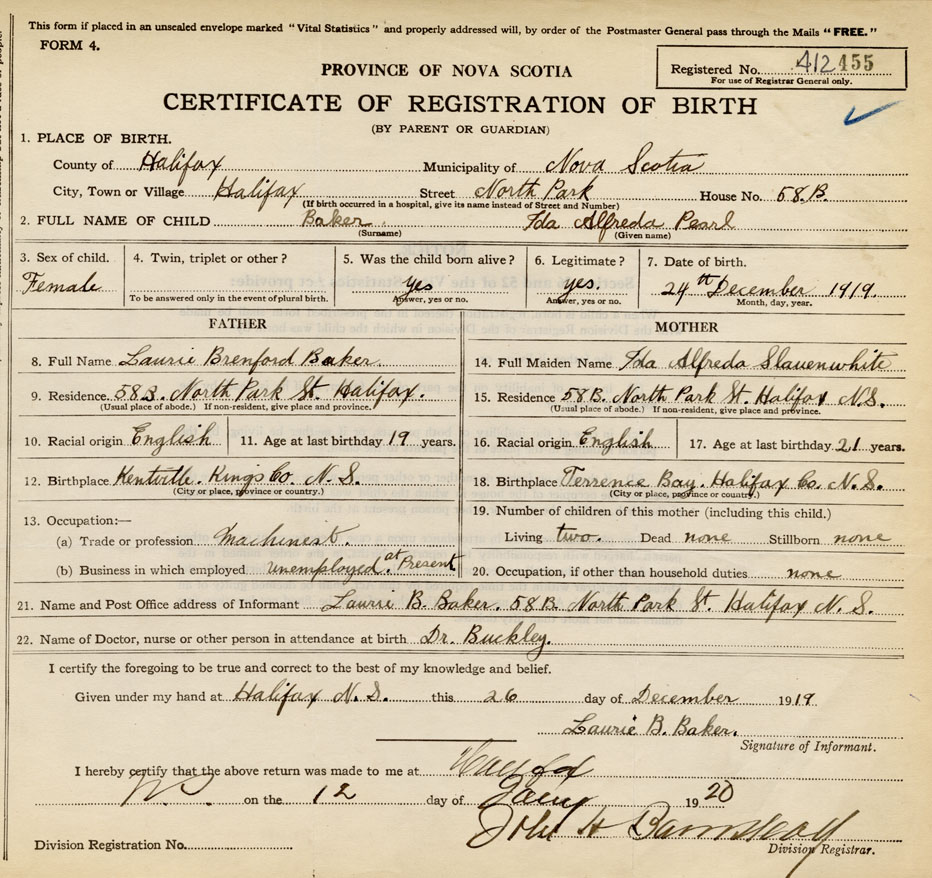 This form if placed in an unsealed envelope marked "Vital Statistics" and properly addressed will, by order of the Postmaster General pass through the Mails "FREE."
FORM 4.
Registered No. 412455
For use of Registrar General only.
PROVINCE OF NOVA SCOTIA
CERTIFICATE OF REGISTRATION OF BIRTH
(BY PARENT OR GUARDIAN)
1. PLACE OF BIRTH.
County of Halifax Municipality of Nova Scotia
City, Town or Village Halifax Street North Park House No. 58.B.
(If birth occurred in a hospital, give its name instead of Street and Number)
2. FULL NAME OF CHILD Baker. Ida Alfreda Pearl
(Surname) (Given name)
3. Sex of child. 4. Twin, triplet or other? 5. Was the child born alive? 6. Legitimate? 7. Date of birth.
Female yes yes. 24th December 1919.
To be answered only in the event of plural birth. Answer, yes or no. Answer, yes or no. Month, day, year.
FATHER MOTHER
8. Full Name Laurie Brenford Baker. 14. Full Maiden Name Ida Alfreda Slauenwhite
9. Residence. 58B. North Park St. Halifax. 15. Residence 58B. North Park St. Halifax N.S.
(Usual place of abode.) If non-resident, give place and province. (Usual place of abode.) If non-resident, give place and province.
10. Racial origin English 11. Age at last birthday 19 years. 16. Racial origin English 17. Age at last birthday 21 years.
12. Birthplace Kentville. Kings Co. N.S. 18. Birthplace Terrence Bay. Halifax Co. N.S.
(City or place, province or country.) (City or place, province or country.)
13. Occupation:— 19. Number of children of this mother (including this child.)
(a) Trade or profession Machinest. Living two. Dead none Stillborn none
(b) Business in which employed unemployed. at Present 20. Occupation, if other than household duties none
21. Name and Post Office address of Informant Laurie B. Baker. 58B North Park St. Halifax N.S.
22. Name of Doctor, nurse or other person in attendance at birth Dr. Buckley.
I certify the foregoing to be true and correct to the best of my knowledge and belief.
Given under my hand at Halifax N.S. this 26 day of December 1919.
Laurie B. Baker.
Signature of Informant.
I hereby certify that the above return was made to me at Halifax
NS on the 12 day of Jany 1920
John H
Division Registration No. Division Registrar.